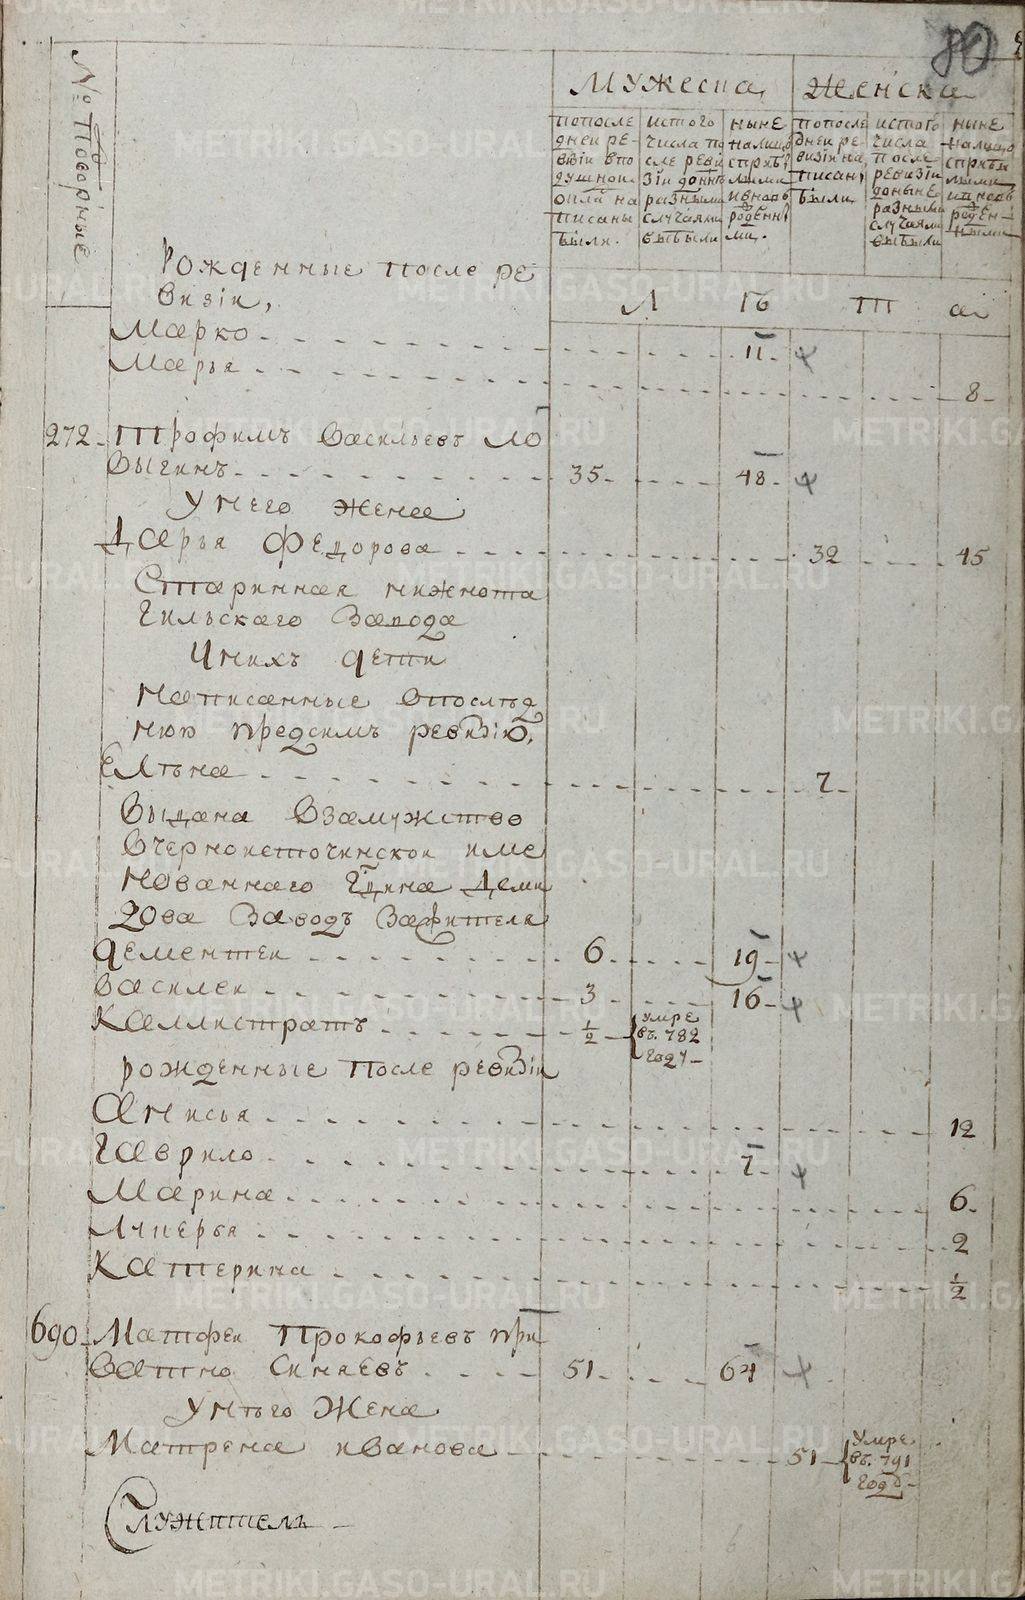 80
№ Поворные
Мужеска
Женска
По после
дней ре-
визіи впо
душной
описи на
писаны
были.
Ис того
числа по
сле реви
зіи доннѣ
разными
случаями
выбыли
Ныне
на лицо
с прибы
лыми
и вновь
рожденны
ми.
По после
дней ре-
визіи на
писаны
были
Ис того
числа
после
ревизіи
до ныне
разными
случаями
выбыли
Ныне
на лицо
с прибы
лыми
и вновь
рожден-
ными
Рожденные после ре
визіи,
Л ѣ т а
Марко 11
Марья 8
272 Трофимъ Васильевъ Ло
выгинъ 35 48
У него жена
Дарья Федорова 32 45
Старинная нижнота
гильскаго завода
У нихъ дети
Написанные в послѣд
нюю пред симъ ревизію,
Елѣна 7
Выдана в замужство
в черноисточинской име
нованнаго Гдина Деми
дова завод за жителя
Дементей 6 19
Василей 3 16
Каллистратъ ½ умре
въ 782
году
рожденные после ревизіи
Анисья 12
Гаврило 7
Марина 6
Лукерья 2
Катерина ½
690 Матфей Прокофьевъ при
ватно Синяевъ 51 64
У нѣго Жена
Матрена Иванова 51 Умре
въ 791
году
Служитель
METRIKI.GASO-URAL.RU